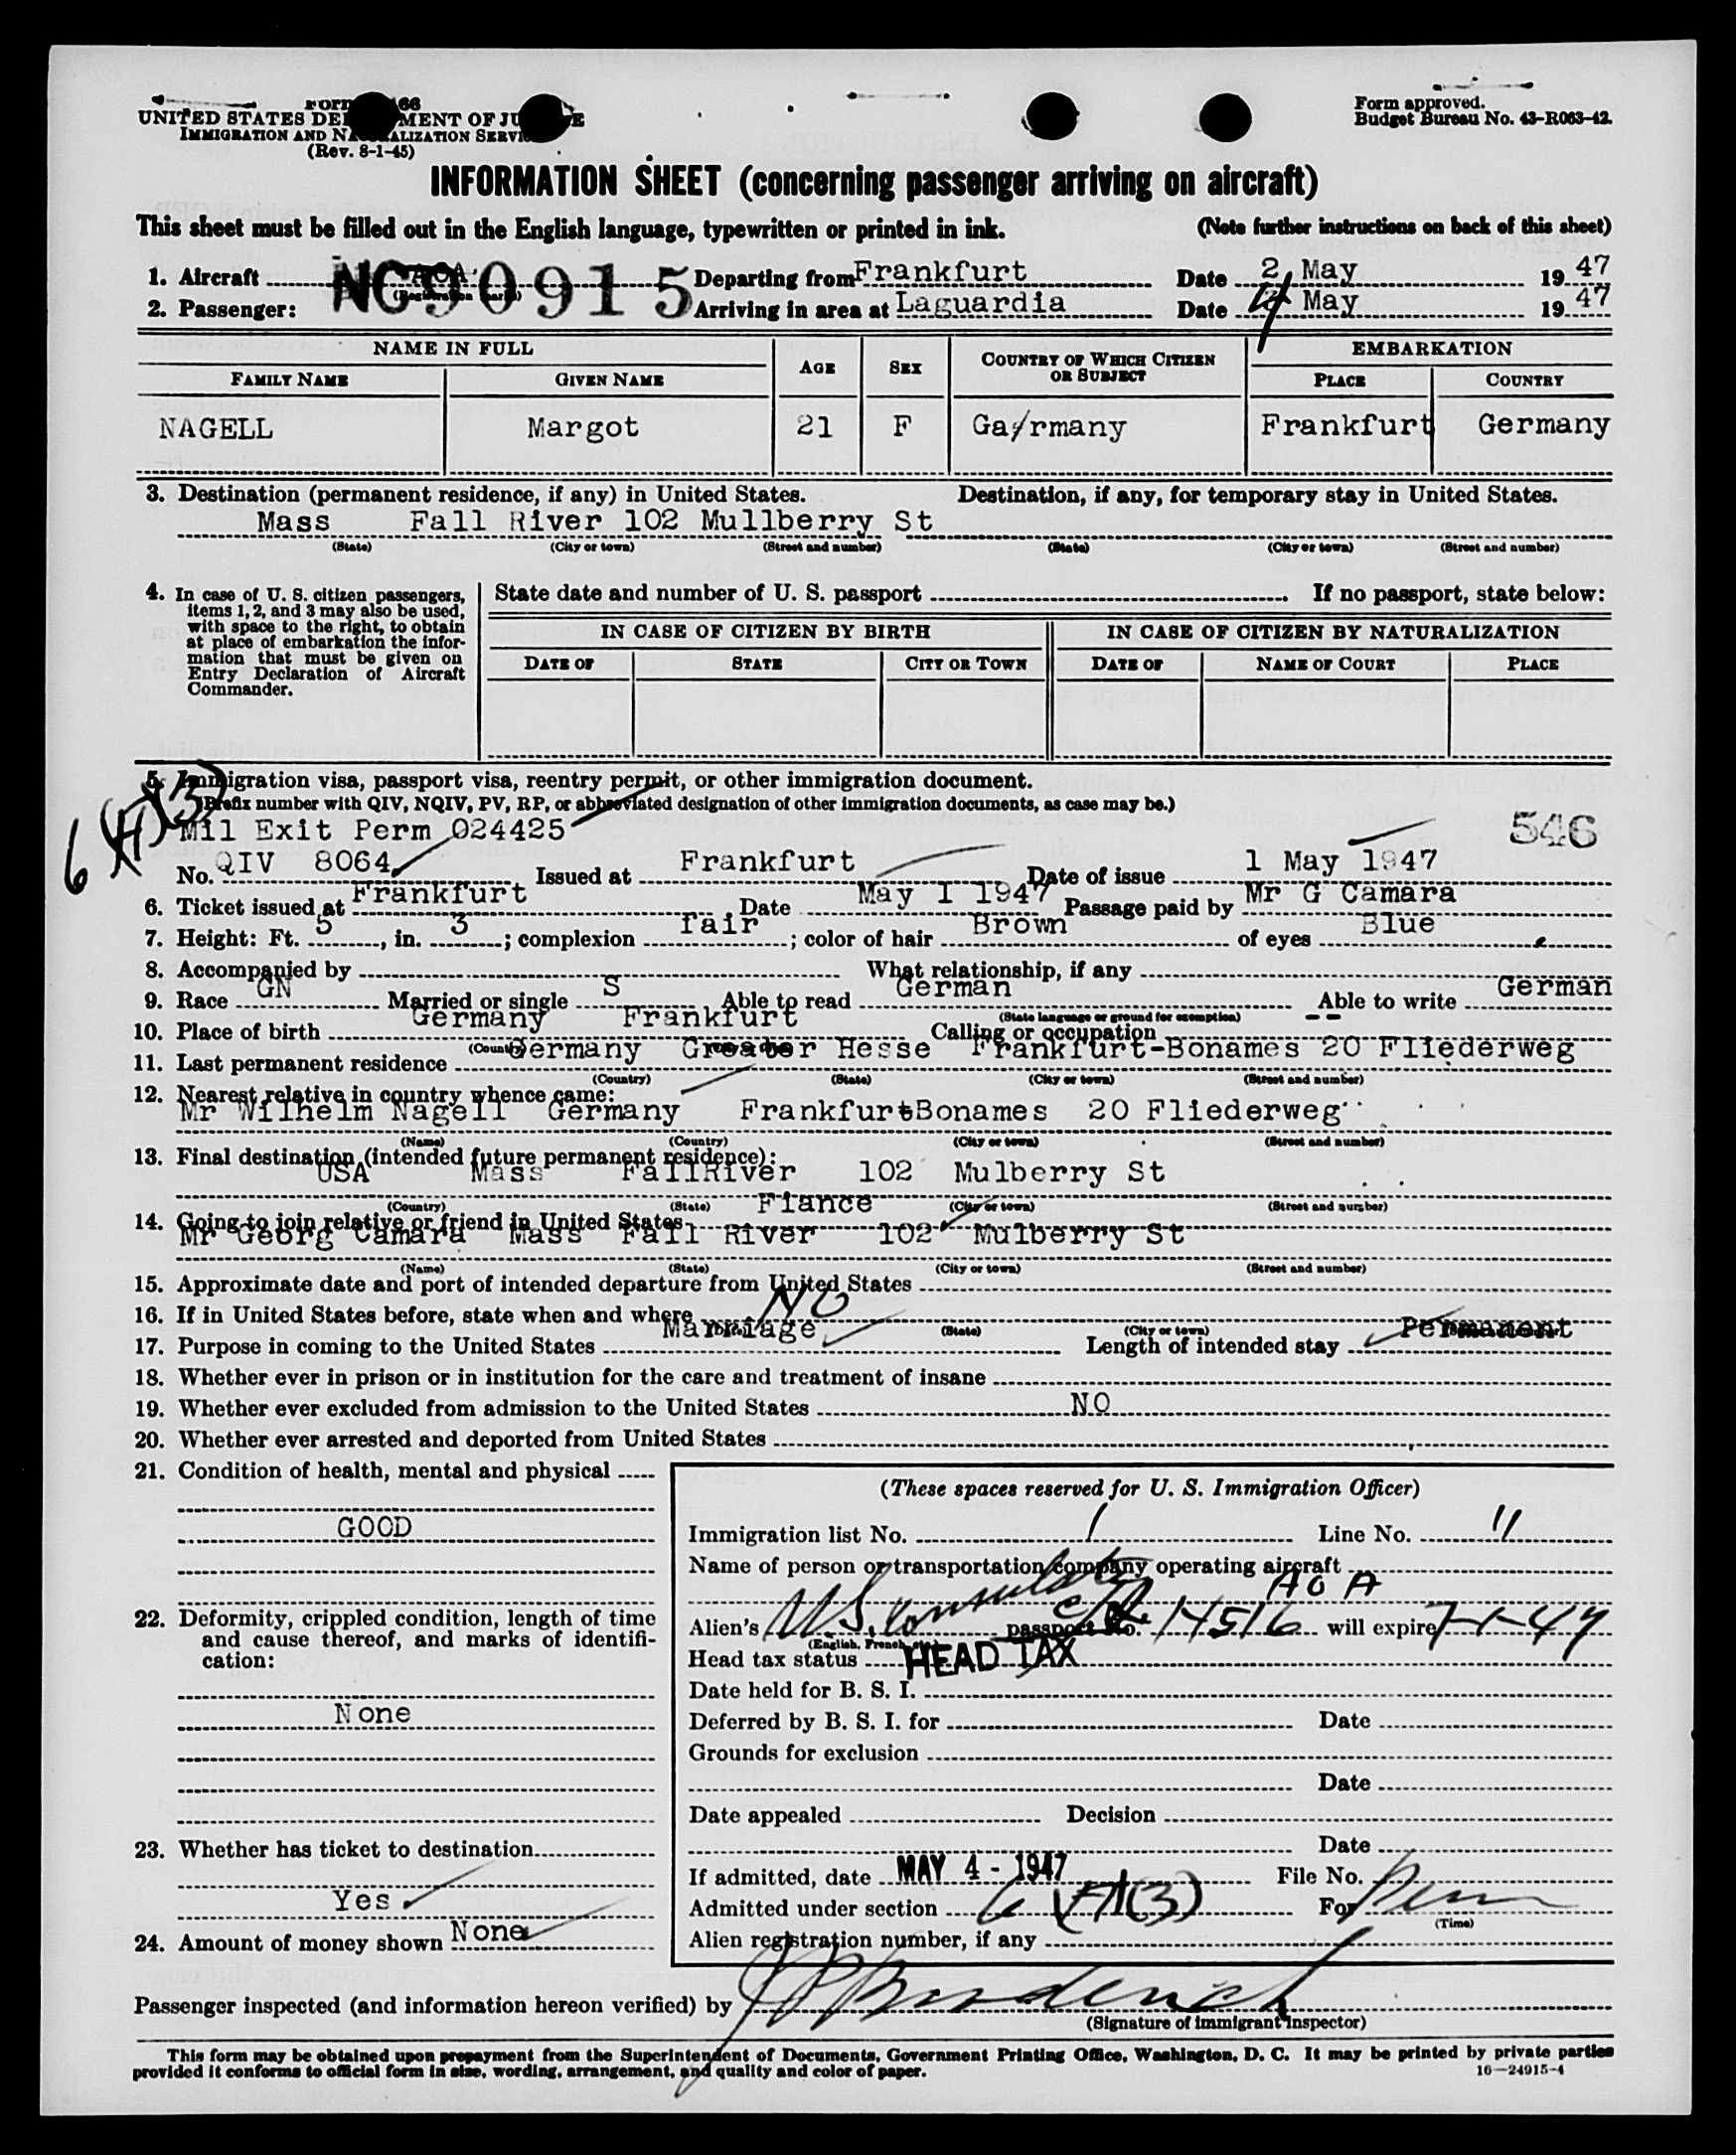 UNITED STATES DE MENT OF JU E
IMMIGRATION AND NA ALIZATION SERVI
(Rev. 8-1-45)
Form approved.
Budget Bureau No. 43-R063-42.
INFORMATION SHEET (concerning passenger arriving on aircraft)
This sheet must be filled out in the English language, typewritten or printed in ink. (Note further instructions on back of this sheet)
1. Aircraft AOA NC90915 Departing from Frankfurt Date 2 May 1947
2. Passenger: Arriving in area at Laguardia Date 4 May 1947
NAME IN FULL AGE SEX COUNTRY OF WHICH CITIZEN OR SUBJECT EMBARKATION
FAMILY NAME GIVEN NAME PLACE COUNTRY
NAGELL Margot 21 F Ga/rmany Frankfurt Germany
3. Destination (permanent residence, if any) in United States. Destination, if any, for temporary stay in United States.
Mass Fall River 102 Mullberry St
(State) (City or town) (Street and number) (State) (City or town) (Street and number)
4. In case of U. S. citizen passengers, items 1, 2, and 3 may also be used, with space to the right, to obtain at place of embarkation the information that must be given on Entry Declaration of Aircraft Commander.
State date and number of U. S. passport If no passport, state below:
IN CASE OF CITIZEN BY BIRTH IN CASE OF CITIZEN BY NATURALIZATION
DATE OF STATE CITY OR TOWN DATE OF NAME OF COURT PLACE
5. Immigration visa, passport visa, reentry permit, or other immigration document.
(Prefix number with QIV, NQIV, PV, RP, or abbreviated designation of other immigration documents, as case may be.)
Mil Exit Perm 024425 546
No. QIV 8064 Issued at Frankfurt Date of issue 1 May 1947
6. Ticket issued at Frankfurt Date May 1 1947 Passage paid by Mr G Camara
7. Height: Ft. 5, in. 3; complexion fair; color of hair Brown of eyes Blue
8. Accompanied by What relationship, if any
9. Race GN Married or single S Able to read German Able to write German
(State language or ground for exemption)
10. Place of birth Germany Frankfurt Calling or occupation --
11. Last permanent residence Germany Greater Hesse Frankfurt-Bonames 20 Fliederweg
(Country) (State) (City or town) (Street and number)
12. Nearest relative in country whence came:
Mr Wilhelm Nagell Germany Frankfurt Bonames 20 Fliederweg
(Name) (Country) (City or town) (Street and number)
13. Final destination (intended future permanent residence):
USA Mass FallRiver 102 Mulberry St
(Country) (State) (City or town) (Street and number)
14. Going to join relative or friend in United States Fiance
Mr Georg Camara Mass Fall River 102 Mulberry St
(Name) (State) (City or town) (Street and number)
15. Approximate date and port of intended departure from United States
16. If in United States before, state when and where NO
(State) (City or town)
17. Purpose in coming to the United States Marriage Length of intended stay Permanent
18. Whether ever in prison or in institution for the care and treatment of insane
19. Whether ever excluded from admission to the United States NO
20. Whether ever arrested and deported from United States
21. Condition of health, mental and physical
GOOD
22. Deformity, crippled condition, length of time and cause thereof, and marks of identification:
None
23. Whether has ticket to destination
Yes
24. Amount of money shown None
(These spaces reserved for U. S. Immigration Officer)
Immigration list No. 1 Line No. 11
Name of person or transportation company operating aircraft
AOA
Alien's U.S. Consulate passport No. 14516 will expire 7-1-47
(English, French, etc.)
Head tax status HEAD TAX
Date held for B. S. I.
Deferred by B. S. I. for Date
Grounds for exclusion
Date
Date appealed Decision
Date
If admitted, date MAY 4 - 1947 File No.
Admitted under section 6 (A)(3) For Perm
(Time)
Alien registration number, if any
Passenger inspected (and information hereon verified) by
(Signature of immigrant inspector)
This form may be obtained upon prepayment from the Superintendent of Documents, Government Printing Office, Washington, D. C. It may be printed by private parties
provided it conforms to official form in size, wording, arrangement, and quality and color of paper. 16—24915-4